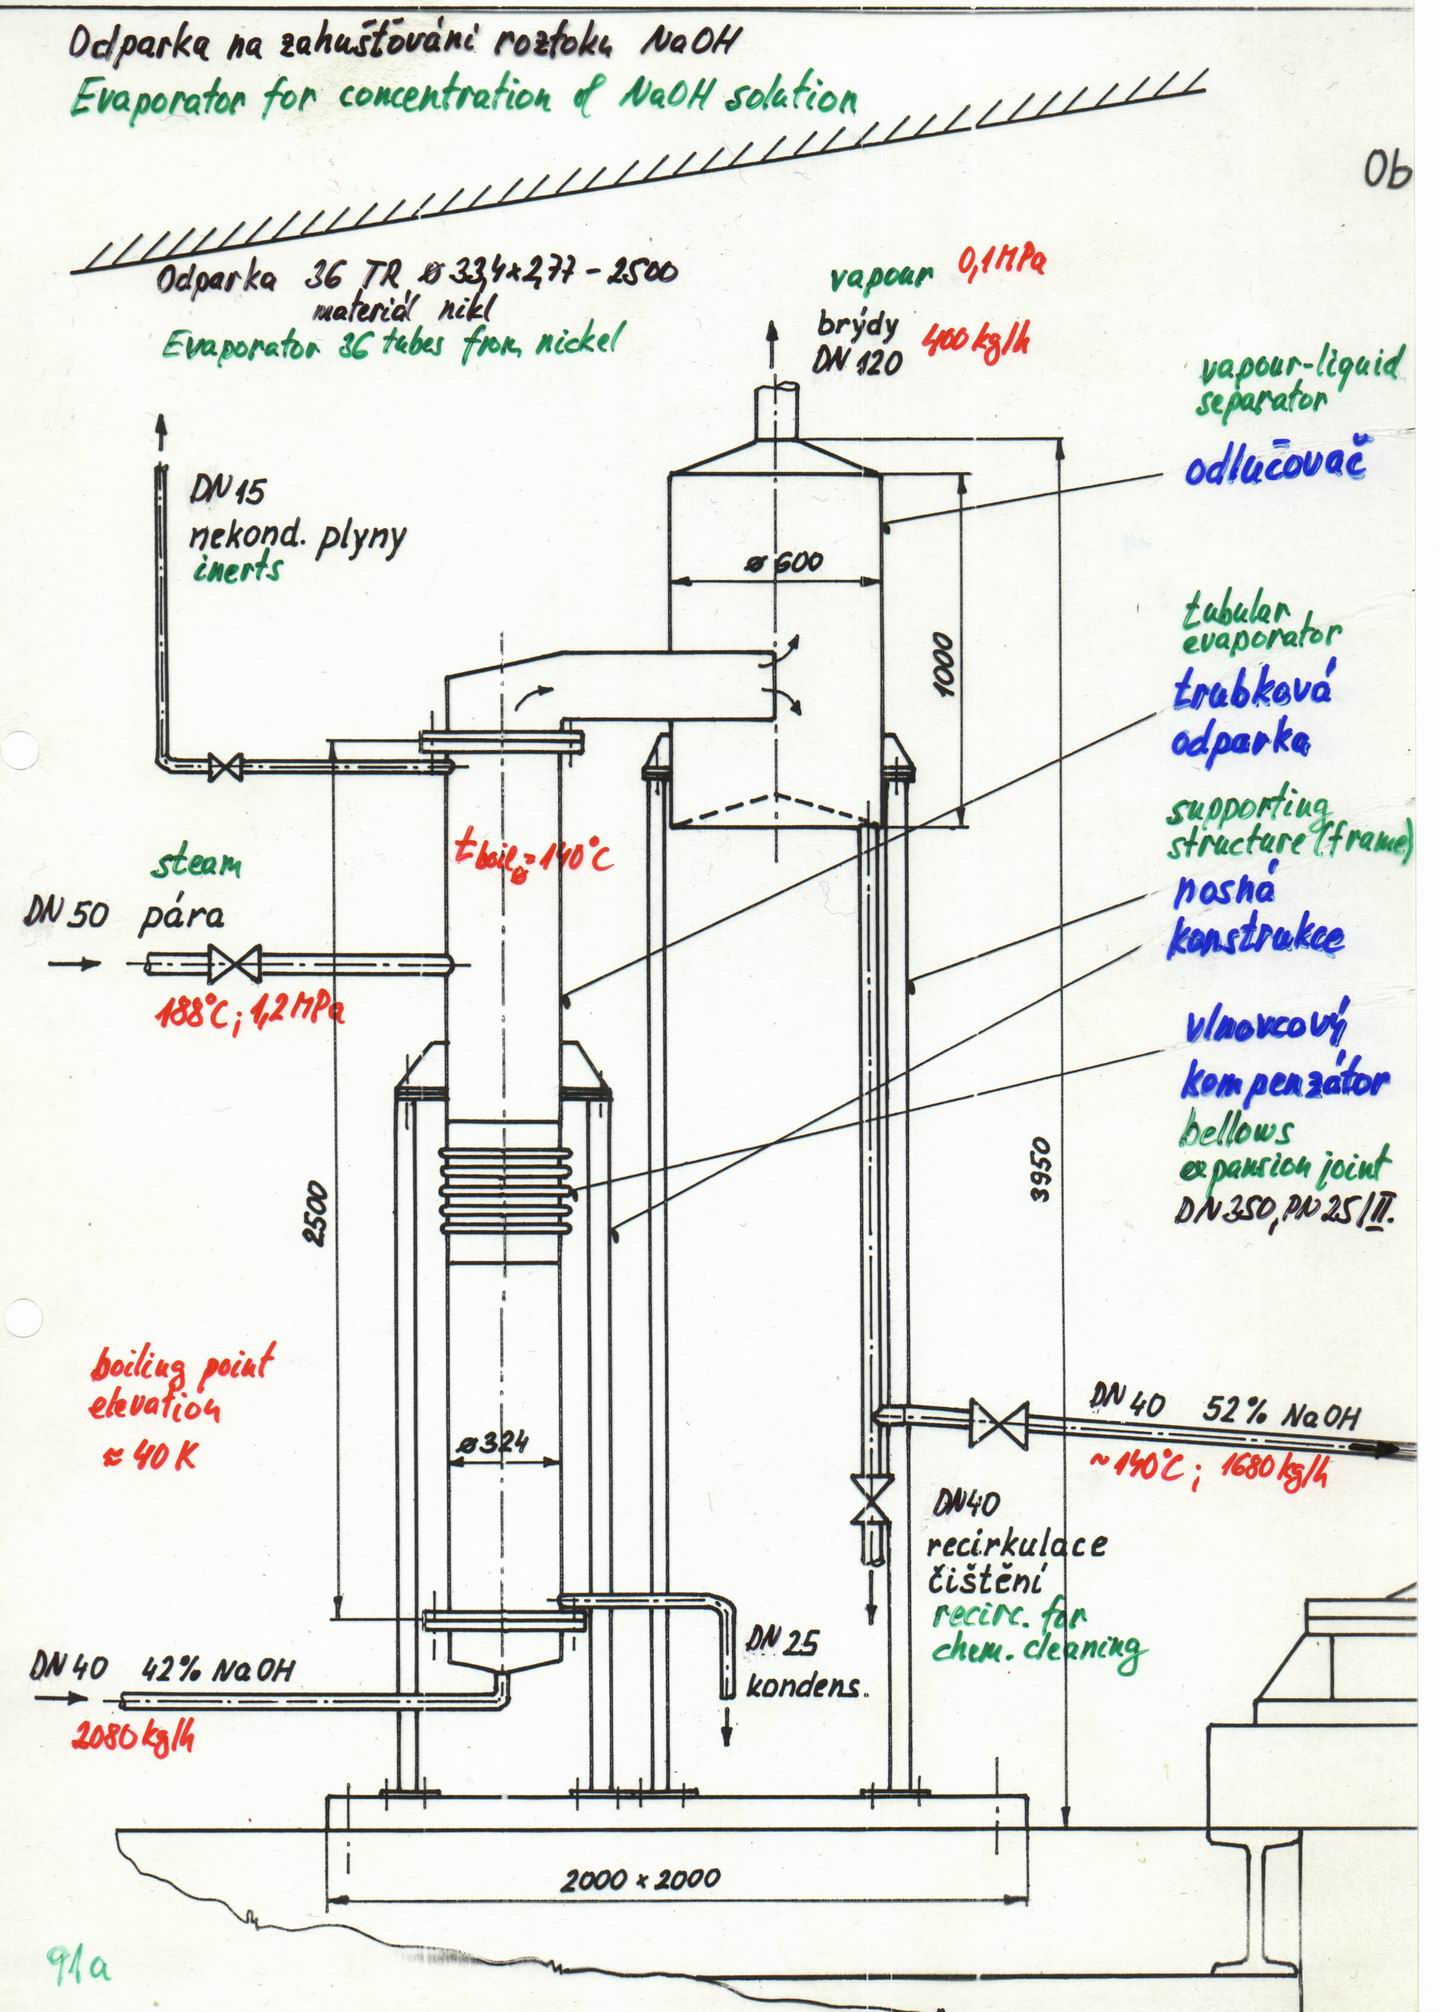 Odparka na zahušťování roztoku NaOH
Evaporator for concentration of NaOH solution
Ob
Odparka 36 TR ø 33,4×2,77 - 2500
materiál nikl
Evaporator 36 tubes from nickel
vapour 0,1MPa
brýdy 400 kg/h
DN 120
vapour-liquid
separator
odlučovač
DN 15
nekond. plyny
inerts
ø 600
1000
tubular
evaporator
trubková
odparka
supporting
structure (frame)
nosná
konstrukce
t boil ø = 140°C
steam
DN 50 pára
188°C; 1,2 MPa
vlnovcový
kompenzátor
bellows
expansion joint
DN 350, PN 25/II.
2500
3950
boiling point
elevation
≈ 40 K
ø 324
DN 40 52% NaOH
~140°C; 1680 kg/h
DN 40
recirkulace
čištění
recirc. for
chem. cleaning
DN 25
kondens.
DN 40 42% NaOH
2080 kg/h
2000 × 2000
91a